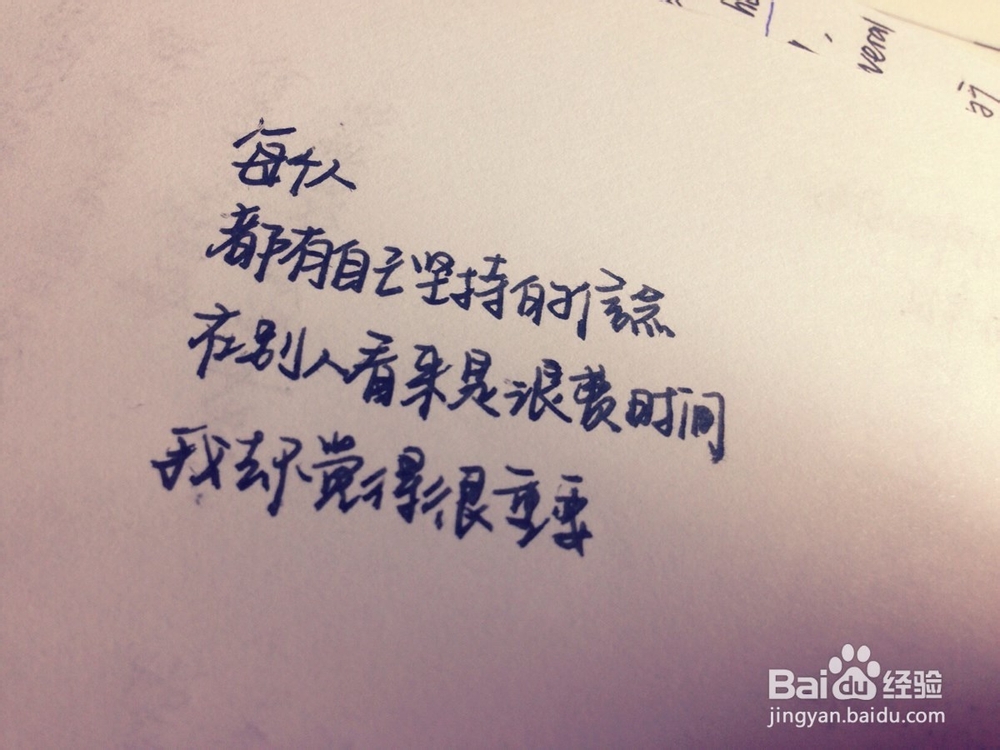 每个人
都有自己坚持的信念
在别人看来是浪费时间
我却觉得很重要
veral
Baidu经验
jingyan.baidu.com